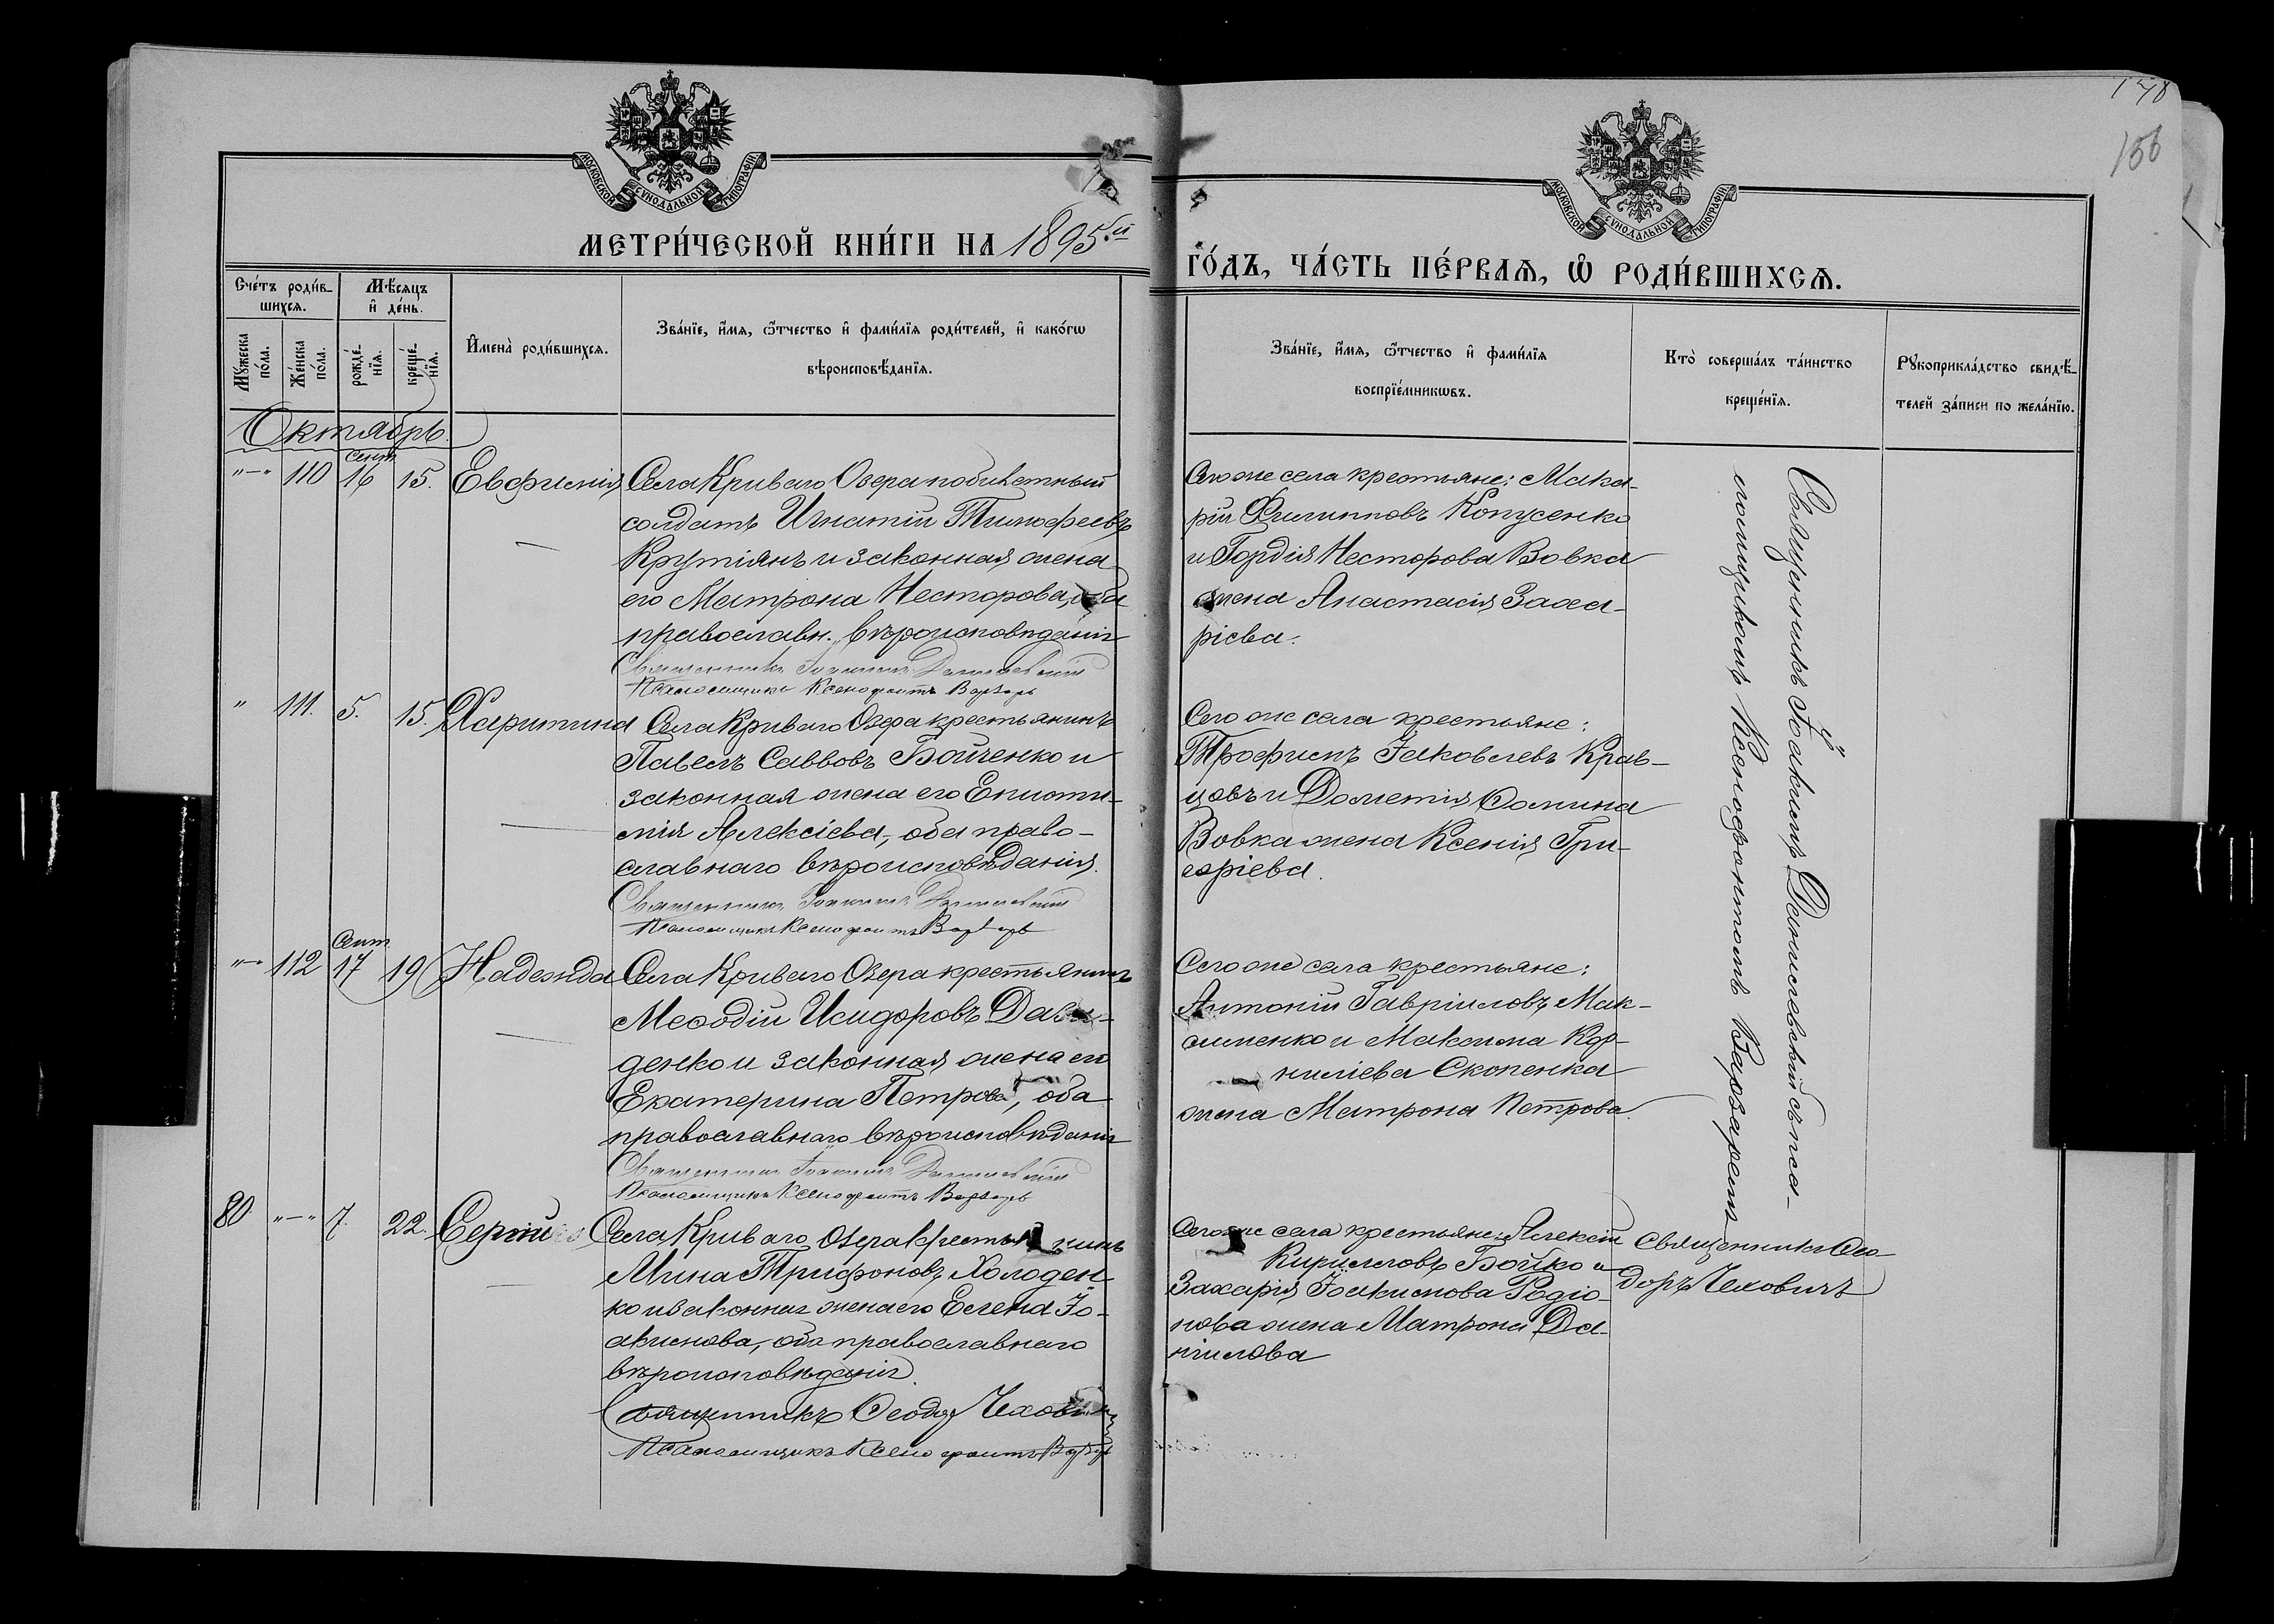 158
156
МОСКОВСКОЙ СУНОДАЛЬНОЙ ТИПОГРАФІИ
МОСКОВСКОЙ СУНОДАЛЬНОЙ ТИПОГРАФІИ
МЕТРИ́ЧЕСКОЙ КНИ́ГИ НА 1895й
ГО́ДЪ, ЧА́СТЬ ПЕ́РВАѦ, Ѡ РОДИ́ВШИХСѦ.
Сче́тъ роди́в-
шихсѧ.
Мѣ́сѧцъ
и҆ де́нь.
Мꙋ́жеска
по́ла.
Же́нска
по́ла.
рожде́-
нїѧ.
креще́-
нїѧ.
И҆мена̀ роди́вшихсѧ.
Зва́нїе, и҆́мѧ, ѻ҆́тчество и҆ фами́лїѧ роди́телей, и҆ како́гѡ
вѣроисповѣ́данїѧ.
Зва́нїе, и҆́мѧ, ѻ҆́тчество и҆ фами́лїѧ
воспрїе́мникѡвъ.
Кто̀ соверша́лъ та́инство
креще́нїѧ.
Рꙋкоприкла́дство свидѣ́-
телей за́писи по жела́нїю.
Октябрь.
"—" 110 Сент. 16 15. Евфимія
Села Криваго Озера побилетный
солдатъ Игнатій Тимофеевъ
Крутіянъ и законная жена
его Матрона Несторова, оба
православн. вѣроисповѣданія
Священникъ Іоакимъ Денисевскій
Псаломщикъ Ксенофонтъ Варзарь
Сего же села крестьяне: Мака-
рій Филипповъ Копусенко
и Гордія Несторова Вовка
жена Анастасія Заха-
ріева.
" 111. 5. 15. Харитина
Села Криваго Озера крестьянинъ
Павелъ Саввовъ Бойченко и
законная жена его Еписти-
мія Алексіева, оба право-
славнаго вѣроисповѣданія.
Священникъ Іоакимъ Денисевскій
Псаломщикъ Ксенофонтъ Варзарь
Сего же села крестьяне:
Трофимъ Іаковлевъ Крав-
цовъ и Дометія Ѳомина
Вовка жена Ксенія Гри-
горіева.
"—" 112 Сент. 17 19 Надежда
Села Криваго Озера крестьянинъ
Меѳодій Исидоровъ Дави-
денко и законная жена его
Екатерина Петрова, оба
православнаго вѣроисповѣданія
Священникъ Іоакимъ Денисевскій
Псаломщикъ Ксенофонтъ Варзарь
Сего же села крестьяне:
Антоній Гавріиловъ Мак-
сименко и Максима Кор-
ниліева Скопенка
жена Матрона Петрова.
Священникъ Іоакимъ Денисевскій съ пса-
ломщикомъ Ксенофонтомъ Варзаремъ
80 "—" 7. 22. Сергій
Села Криваго Озера крестьянинъ
Мина Трифоновъ Холоден-
ко и законная жена его Елена Іо-
акимова, оба православнаго
вѣроисповѣданія.
Священникъ Ѳеодоръ Чеховичъ
Псаломщикъ Ксенофонтъ Варзарь
Сего же села крестьяне: Алексій
Кирилловъ Бойко и
Захарія Іоакимова Родіо-
нова жена Матрона Да-
ніилова
Священникъ Ѳео-
доръ Чеховичъ